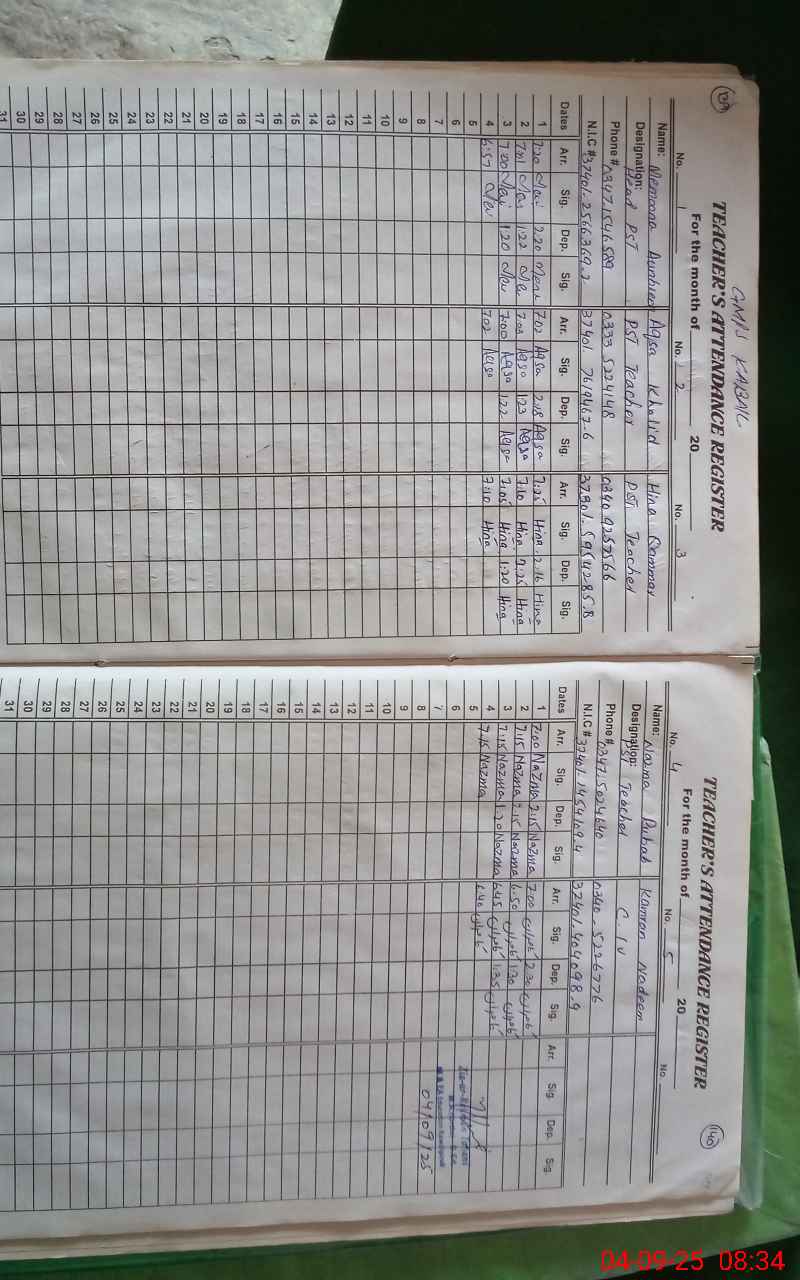 139
GMPS KABAIL
TEACHER'S ATTENDANCE REGISTER
For the month of 20
No. 1 No. 2 No. 3
Name: Aqsa Khalid Hina
Designation: Head PST PST Teacher PST Teacher
Phone # 0347.1546589 0333 5224148 0340 9257566
N.I.C # 37401.2566369.2 37401. 7619467.6
Dates Arr. Sig. Dep. Sig. Arr. Sig. Dep. Sig. Arr. Sig. Dep. Sig.
1 7:20 2.20 7.02 Aqsa 2.18 Aqsa 7:25 Hina 2.16 Hina
2 7.01 1.22 7.03 Aqsa 1.23 Aqsa 7.10 Hina Hina
3 7.00 1.20 7.00 Aqsa 1.22 Aqsa 7.05 Hina 1.20 Hina
4 6.57 7.02 Aqsa 7.10 Hina
5
6
7
8
9
10
11
12
13
14
15
16
17
18
19
20
21
22
23
24
25
26
27
28
29
30
31
140
TEACHER'S ATTENDANCE REGISTER
For the month of 20
No. 4 No. 5 No.
Name: Nazma Kamran Nadeem
Designation: PST Teacher C.IV
Phone # 0347.5024640 0340.5226776
N.I.C # 37401.1454109.4
Dates Arr. Sig. Dep. Sig. Arr. Sig. Dep. Sig. Arr. Sig. Dep. Sig.
1 7.00 Nazma 2.15 Nazma 7.00 کامران 2.30 کامران
2 7.15 Nazma Nazma 6.50 کامران کامران
3 7.15 Nazma 1.20 Nazma 6.45 کامران 1.35 کامران
4 7.15 Nazma 6.40 کامران
5
6
7
8
9
10
11
12
13
14
15
16
17
18
19
20
21
22
23
24
25
26
27
28
29
30
31
04/09/25
04-09-25 08:34